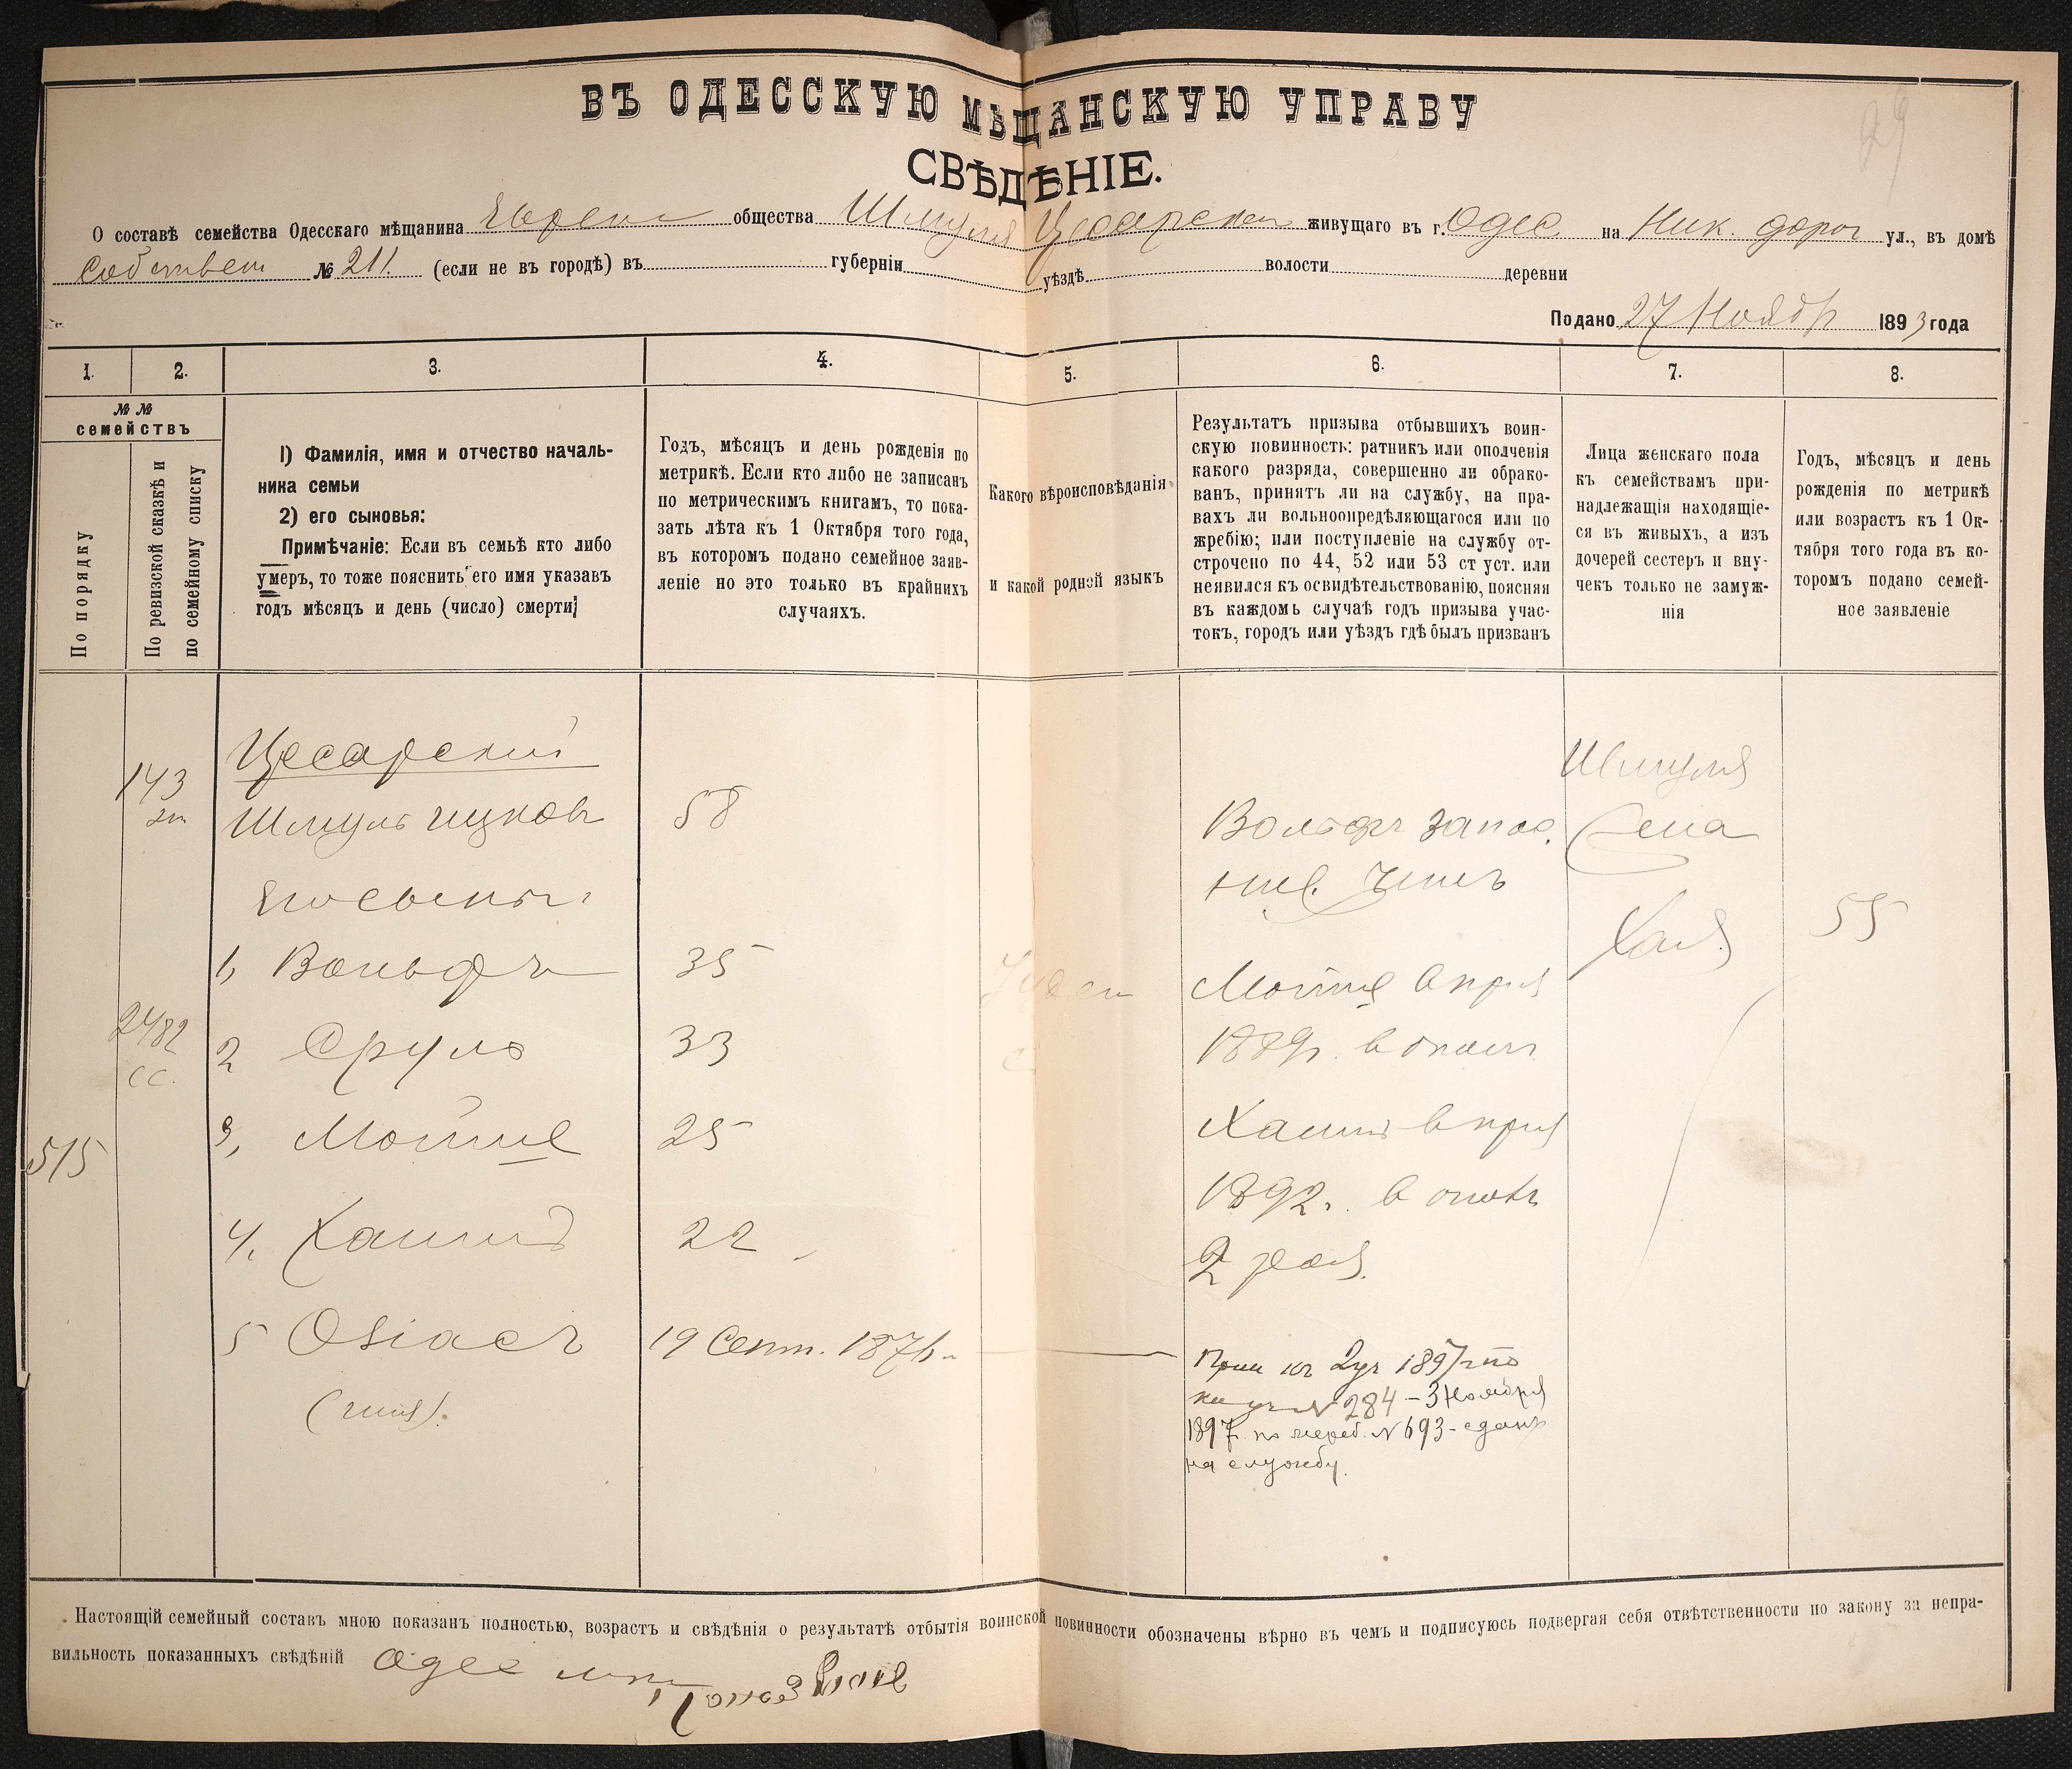 29
ВЪ ОДЕССКУЮ МѢЩАНСКУЮ УПРАВУ
СВѢДѢНІЕ.
О составѣ семейства Одесскаго мѣщанина Еврейск общества Шмуля Цесарскаго живущаго въ г. Одес на Ник. дорог ул., въ домѣ
Собствен № 211. (если не въ городѣ) въ губерніи уѣздѣ волости деревни
Подано 27 Ноябр 1893 года
1. 2. 3. 4. 5. 6. 7. 8.
№ №
семействъ
По порядку
По ревизской сказкѣ и
по семейному списку
1) Фамилія, имя и отчество началь-
ника семьи
2) его сыновья:
Примѣчаніе: Если въ семьѣ кто либо
умеръ, то тоже пояснить его имя указавъ
годъ мѣсяцъ и день (число) смерти;
Годъ, мѣсяцъ и день рожденія по
метрикѣ. Если кто либо не записанъ
по метрическимъ книгамъ, то пока-
зать лѣта къ 1 Октября того года,
въ которомъ подано семейное заяв-
леніе но это только въ крайнихъ
случаяхъ.
Какого вѣроисповѣданія
и какой родной языкъ
Результатъ призыва отбывшихъ воин-
скую повинность: ратникъ или ополченія
какого разряда, совершенно ли обрако-
ванъ, принятъ ли на службу, на пра-
вахъ ли вольноопредѣляющагося или по
жребію; или поступленіе на службу от-
строчено по 44, 52 или 53 ст уст. или
неявился къ освидѣтельствованію, поясняя
въ каждомъ случаѣ годъ призыва учас-
токъ, городъ или уѣздъ гдѣ былъ призванъ
Лица женскаго пола
къ семействамъ при-
надлежащія находящіе-
ся въ живыхъ, а изъ
дочерей сестеръ и вну-
чекъ только не замуж-
нія
Годъ, мѣсяцъ и день
рожденія по метрикѣ
или возрастъ къ 1 Ок-
тября того года въ ко-
торомъ подано семей-
ное заявленіе
143
Цесарскій
Шмуль Ицков 58
Его сыны:
1, Вольфъ 35
2482
сс.
2 Сруль 33
3, Мойше 25
515
4, Хаимъ 22
5 Овіасъ 19 Сент. 1876
Іудей
Вольфъ запас.
ниж. чинъ
Мойше в приз
1889г. в опол
Хаимъ в приз
1892г. в
2 раз.
1897
№ 284 - 3 Ноября
1897 по жреб. № 693 - сданъ
на службу.
Шмуля
жена
Хая 55
Настоящій семейный составъ мною показанъ полностью, возрастъ и свѣдѣнія о результатѣ отбытія воинской повинности обозначены вѣрно въ чемъ и подписуюсь подвергая себя отвѣтственности по закону за непра-
вильность показанныхъ свѣдѣній Одес